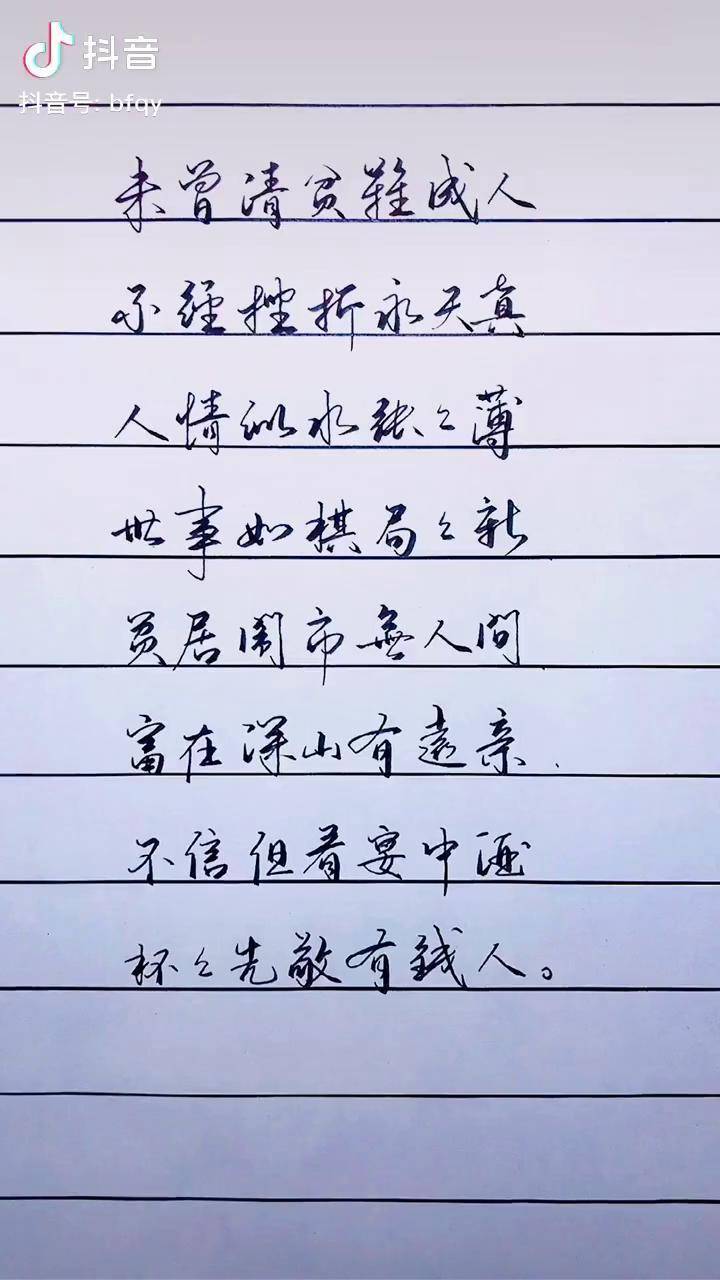 抖音
抖音号: bfqy
未曾清贫難成人
不经挫折永天真
人情似水张々薄
世事如棋局々新
贫居闹市無人问
富在深山有遠亲
不信但看宴中酒
杯々先敬有钱人。